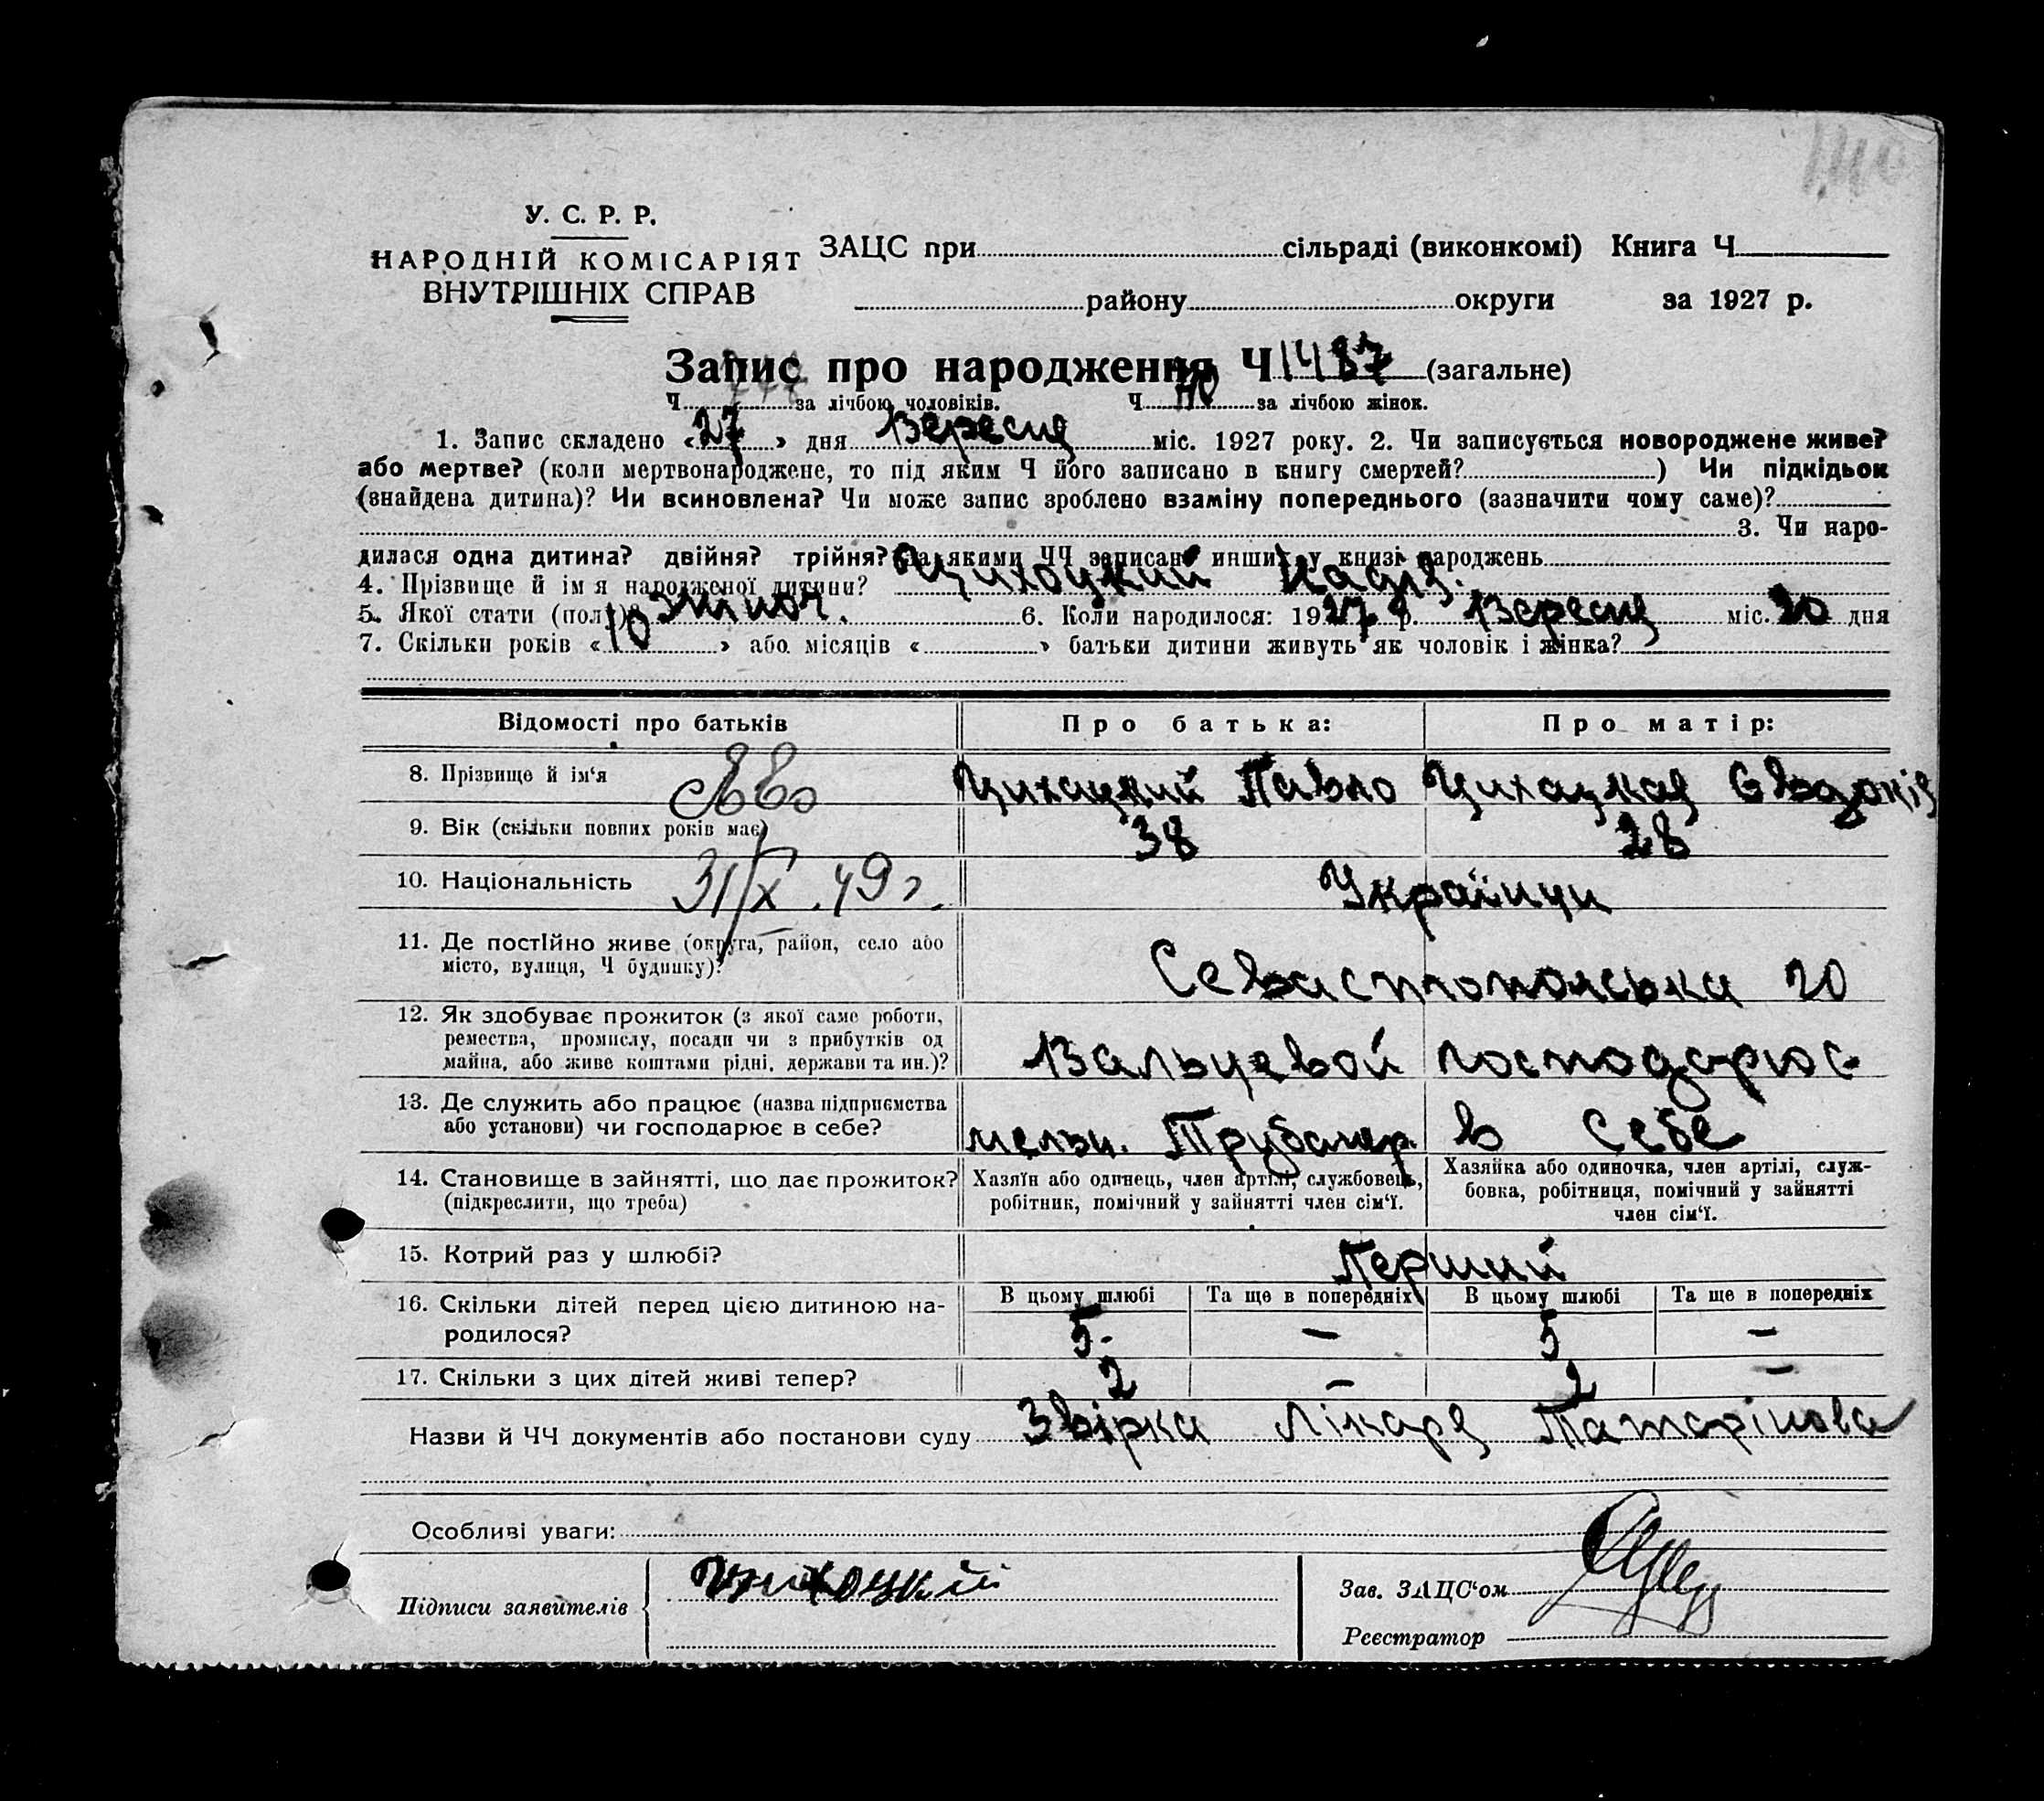 140
У. С. Р. Р.
НАРОДНІЙ КОМІСАРІЯТ
ВНУТРІШНІХ СПРАВ
ЗАЦС при сільраді (виконкомі) Книга Ч
району округи за 1927 р.
Запис про народження Ч 1487 (загальне)
Ч за лічбою чоловіків. Ч за лічбою жінок.
1. Запис складено «27» дня Вересня міс. 1927 року. 2. Чи записується новороджене живе?
або мертве? (коли мертвонароджене, то під яким Ч його записано в книгу смертей? ) Чи підкідьок
(знайдена дитина)? Чи всиновлена? Чи може запис зроблено взаміну попереднього (зазначити чому саме)?
3. Чи наро-
дилася одна дитина? двійня? трійня? За якими ЧЧ записано инших у книзі народжень
4. Прізвище й ім я народженої дитини? Цихоцкий Надія.
5. Якої стати (полу)? жіноч. 6. Коли народилося: 1927 р. Вересня міс. 20 дня
7. Скільки років «10» або місяців « » батьки дитини живуть як чоловік і жінка?
Відомості про батьків Про батька: Про матір:
8. Прізвище й ім‘я Цихацкий Павло Цихацкая Євдокія
9. Вік (скільки повних років має) 38 28
10. Національність 31/X.49 г. Українци
11. Де постійно живе (округа, район, село або
місто, вулиця, Ч будинку)? Севастопольська 20
12. Як здобуває прожиток (з якої саме роботи,
ремества, промислу, посади чи з прибутків од
майна, або живе коштами рідні, держави та ин.)? Вальцевой господарює
13. Де служить або працює (назва підприємства
або установи) чи господарює в себе? мельн. в себе
14. Становище в зайнятті, що дає прожиток?
(підкреслити, що треба)
Хазяїн або одинець, член артілі, службовець,
робітник, помічний у зайнятті член сім‘ї.
Хазяйка або одиночка, член артілі, служ-
бовка, робітниця, помічний у зайнятті
член сім‘ї.
15. Котрий раз у шлюбі? Перший
16. Скільки дітей перед цією дитиною на-
родилося?
В цьому шлюбі Та ще в попередніх В цьому шлюбі Та ще в попередніх
5. – 5 –
17. Скільки з цих дітей живі тепер? 2 – 2 –
Назви й ЧЧ документів або постанови суду Звірка Лікаря Татарінова
Особливі уваги:
Підписи заявителів Цихоцкий
Зав. ЗАЦС‘ом
Реєстратор